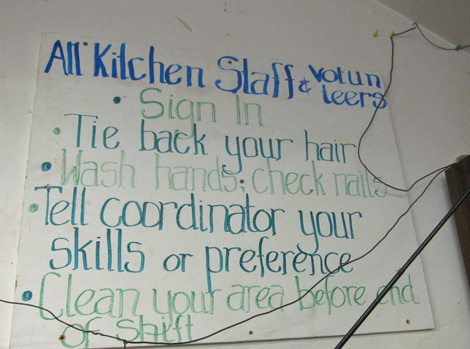 All Kitchen Staff & Volun
teers
• Sign In
• Tie back your hair
• Wash hands; check nails
• Tell coordinator your
skills or preference
• Clean your area before end
of shift